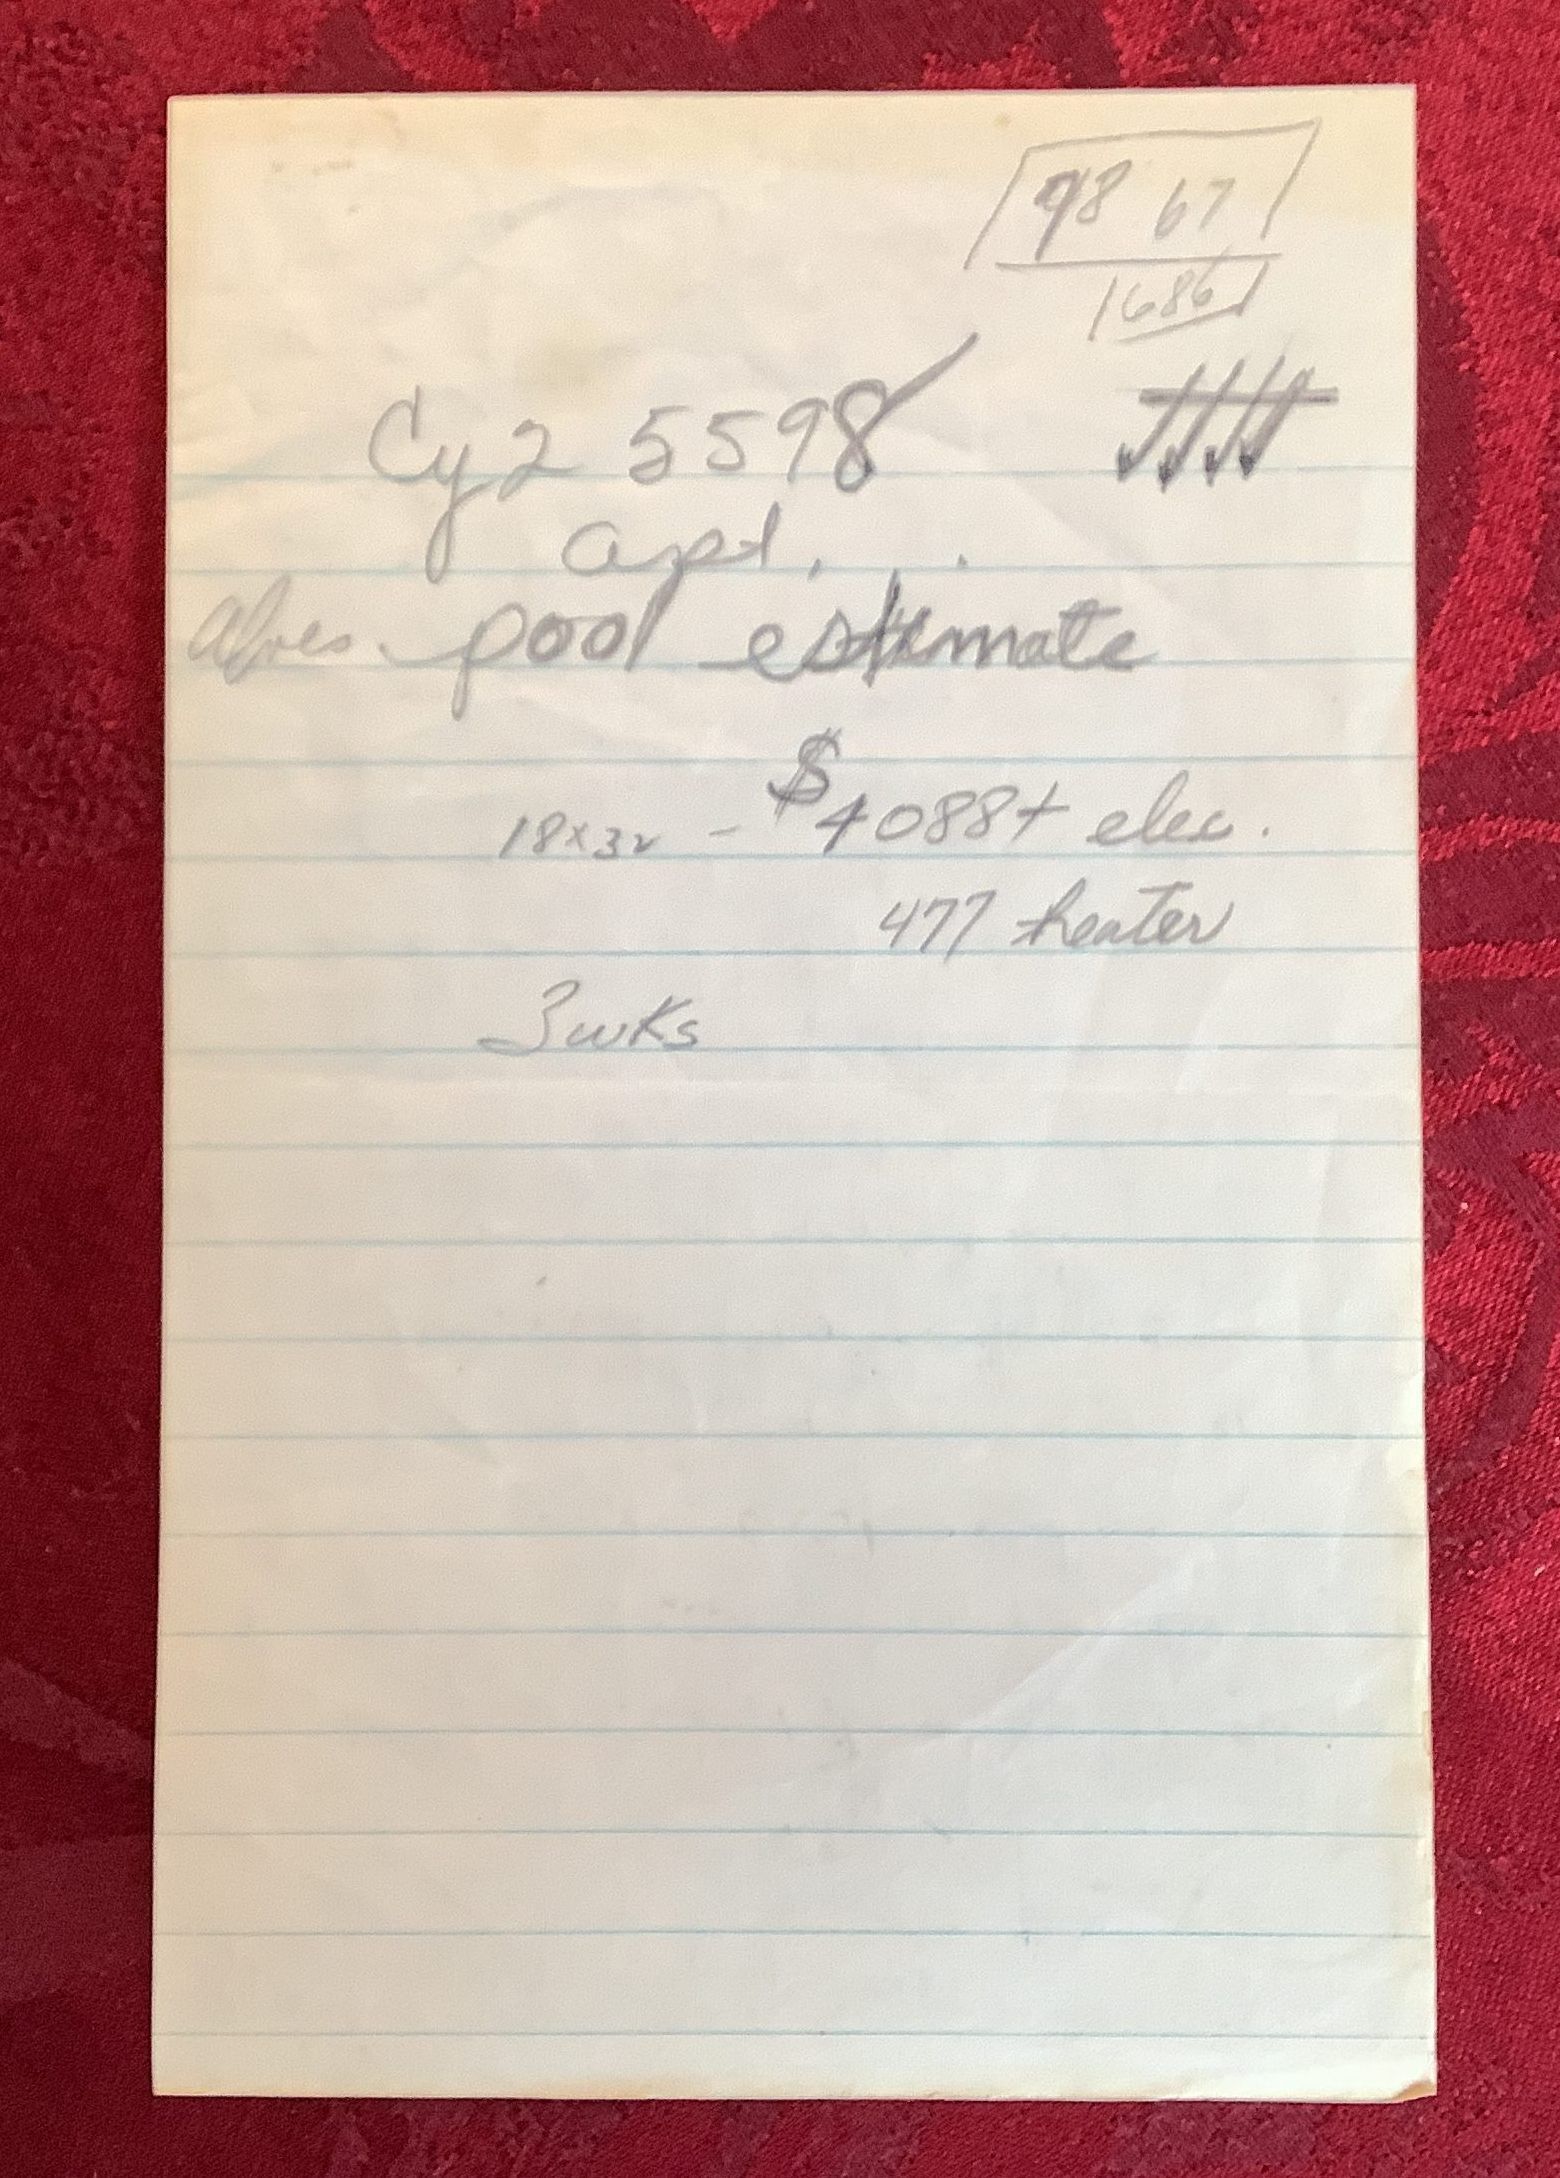 98 67
1686
Cy2 5598
apt.
pool estimate
18x32 - $4088+ elec.
477 heater
3 wks